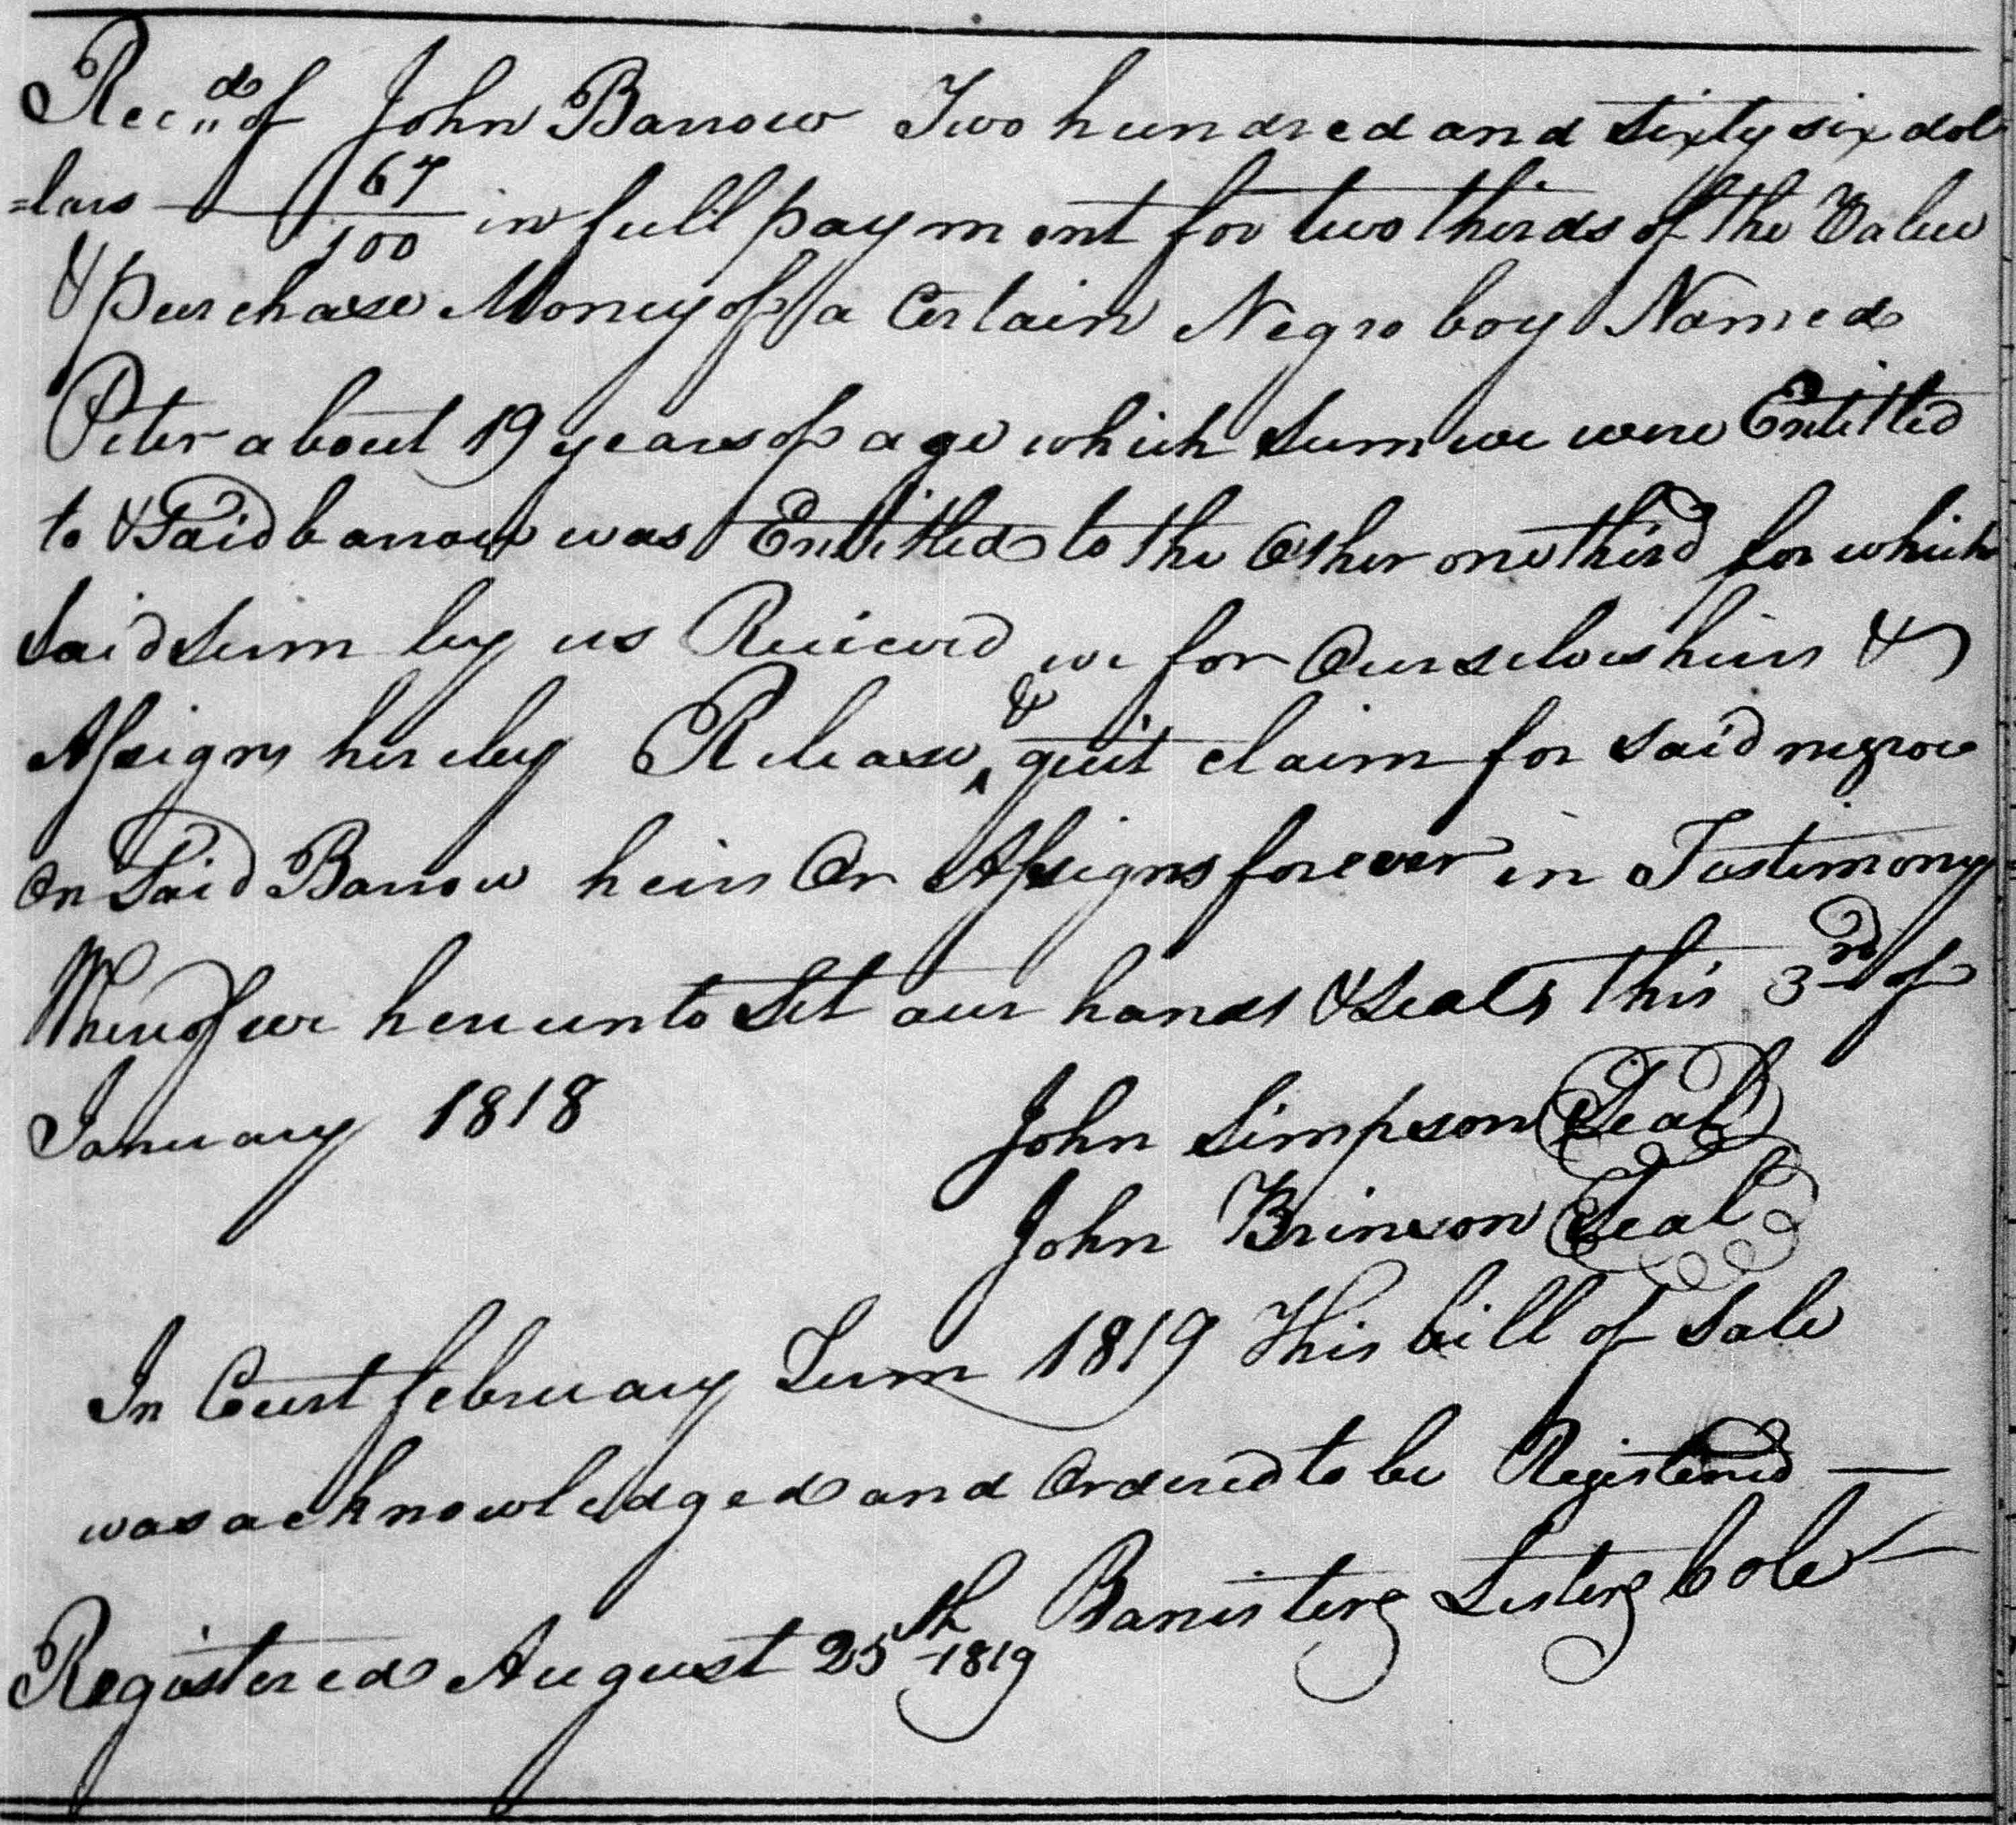 Rec,,d of John Barrow Two hundred and sixty six dol
=lars 67/100 in full payment for two thirds of the Value
& purchase Money of a Certain Negro boy Named
Peter about 19 years of age which sum we were Entitled
to & Said barrow was Entitled to the Other one third for which
Said Sum by us Reiceved we for Ourselves heirs &
Assigns hereby Release & quit claim for said negroe
On Said Barrow heirs Or Assigns forever in Testimony
Whereof we hereunto Set our hands & Seals this 3rd of
January 1818
John Simpson Seal
John Brinson Seal
In Court february Term 1819 This bill of Sale
was acknowledged and Ordered to be Registered —
Registered August 25th 1819 Banister Lester